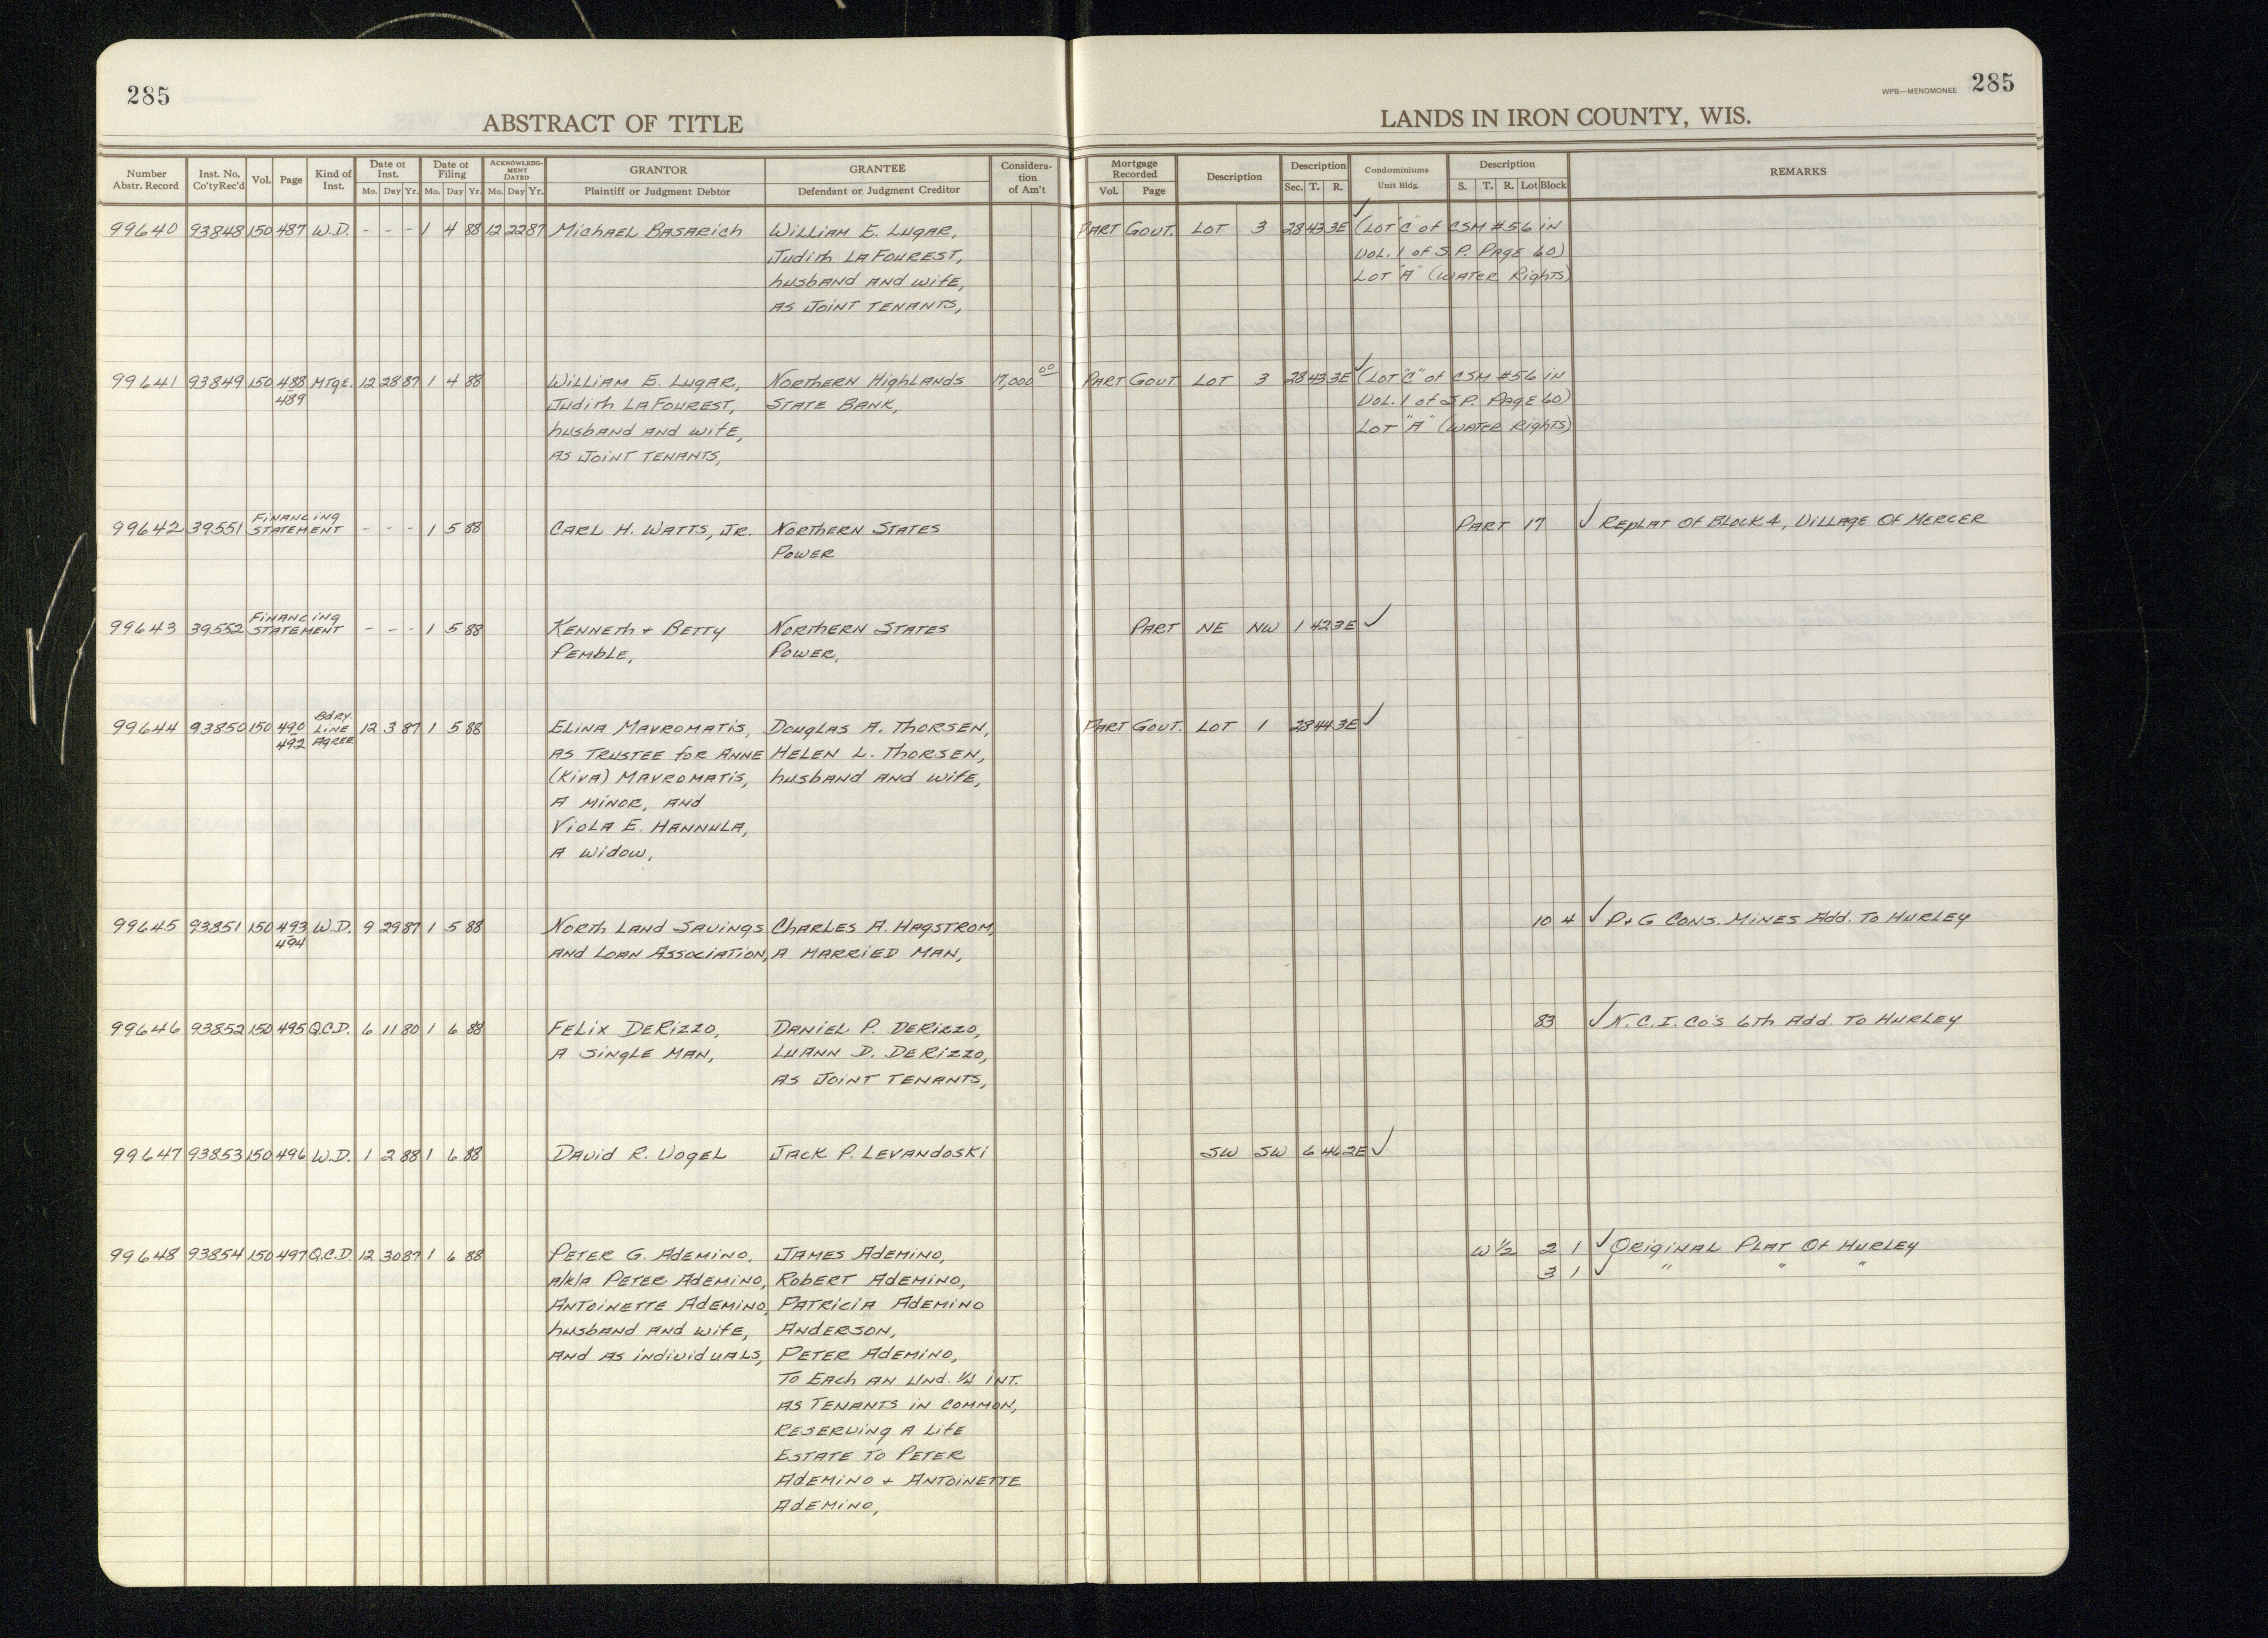 285
ABSTRACT OF TITLE
WPB—MENOMONEE 285
LANDS IN IRON COUNTY, WIS.
Number Abstr. Record Inst. No. Co'ty Rec'd Vol. Page Kind of Inst. Date of Inst. Mo. Day Yr. Date of Filing Mo. Day Yr. ACKNOWLEDGMENT DATED Mo. Day Yr. GRANTOR Plaintiff or Judgment Debtor GRANTEE Defendant or Judgment Creditor Consideration of Am't Mortgage Recorded Vol. Page Description Description Sec. T. R. Condominiums Unit Bldg. Description S. T. R. Lot Block REMARKS
99640 93848 150 487 W.D. - - - 1 4 88 12 22 87 Michael Basarich William E. Lugar, Part Gout. Lot 3 28 43 3E ✓ (Lot "C" of CSM #56 in
Judith LaFourest, Vol. 1 of S.P. Page 60)
husband and wife, Lot "A" (Water Rights)
as Joint Tenants,
99641 93849 150 488 Mtge. 12 28 87 1 4 88 William E. Lugar, Northern Highlands 17,000 00 Part Gout Lot 3 28 43 3E ✓ (Lot "C" of CSM #56 in
489 Judith LaFourest, State Bank, Vol. 1 of S.P. Page 60)
husband and wife, Lot "A" (Water Rights)
as Joint Tenants,
Financing
99642 39551 Statement - - - 1 5 88 Carl H. Watts, Jr. Northern States Part 17 ✓ Replat of Block 4, Village of Mercer
Power
Financing
99643 39552 Statement - - - 1 5 88 Kenneth + Betty Northern States Part NE NW 1 42 3E ✓
Pemble, Power,
Bdry.
99644 93850 150 490 Line 12 3 87 1 5 88 Elina Mavromatis, Douglas A. Thorsen, Part Gout. Lot 1 28 44 3E ✓
492 Agree. as Trustee for Anne Helen L. Thorsen,
(Kiva) Mavromatis, husband and wife,
a minor, and
Viola E. Hannula,
a widow,
99645 93851 150 493 W.D. 9 29 87 1 5 88 North Land Savings Charles A. Hagstrom, 10 4 ✓ P+G Cons. Mines Add. To Hurley
494 and Loan Association, a married man,
99646 93852 150 495 Q.C.D. 6 11 80 1 6 88 Felix DeRizzo, Daniel P. DeRizzo, 83 ✓ N.C.I. Co's 6th Add. To Hurley
a single man, LuAnn D. DeRizzo,
as Joint Tenants,
99647 93853 150 496 W.D. 1 2 88 1 6 88 David R. Vogel Jack P. Levandoski SW SW 6 46 2E ✓
99648 93854 150 497 Q.C.D. 12 30 87 1 6 88 Peter G. Ademino, James Ademino, W 1/2 2 1 ✓ Original Plat Of Hurley
a/k/a Peter Ademino, Robert Ademino, 3 1 ✓ " " "
Antoinette Ademino, Patricia Ademino
husband and wife, Anderson,
and as individuals, Peter Ademino,
To Each an Und. 1/4 int.
as Tenants in common,
reserving a Life
Estate to Peter
Ademino + Antoinette
Ademino,